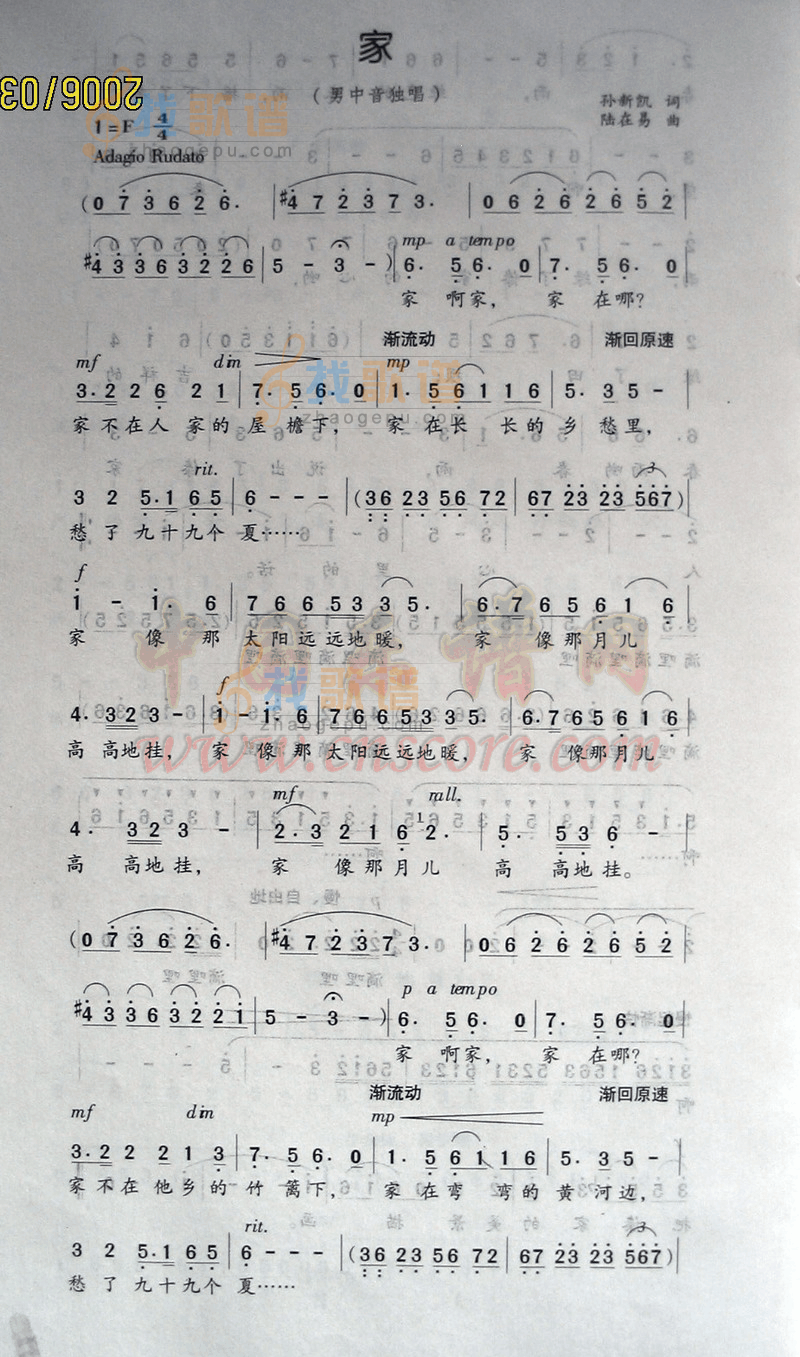 家
（男中音独唱）
孙新凯 词
陆在易 曲
2006/03
1=F 4/4
Adagio Rudato
找歌谱
zhaogepu.com
(0 7 3 6 2 6· | #4 7 2 3 7 3· | 0 6 2 6 2 6 5 2 |
#4 3 3 6 3 2 2 6 | 5 - 3 -) | 6· 5 6· 0 | 7· 5 6· 0 |
mp a tempo
家 啊家， 家 在哪？
渐流动 渐回原速
mf dim mp
3· 2 2 2 6 2 1 | 7· 5 6· 0 | 1· 5 6 1 1 6 | 5· 3 5 - |
家不在人 家的屋 檐下， 家 在长 长的乡 愁里，
rit.
3 2 5·1 6 5 | 6 - - - | (36 23 56 72 | 67 23 23 567) |
愁了九十九个 夏……
f
1 - 1· 6 | 7 6 6 5 3 3 5· | 6·7 6 5 6 1 6 |
家 像 那 太阳远远地暖， 家 像那月儿
f
4· 3 2 3 - | 1 - 1· 6 | 7 6 6 5 3 3 5· | 6·7 6 5 6 1 6 |
高 高地挂， 家 像 那 太阳远远地暖， 家 像那月儿
www.cnscore.com
mf rall.
4· 3 2 3 - | 2·3 2 1 6 2· | 5· 5 3 6 - |
高 高地挂， 家 像那月儿 高 高地挂。
(0 7 3 6 2 6· | #4 7 2 3 7 3· | 0 6 2 6 2 6 5 2 |
p a tempo
#4 3 3 6 3 2 2 1 | 5 - 3 -) | 6· 5 6· 0 | 7· 5 6· 0 |
家 啊家， 家 在哪？
渐流动 渐回原速
mf dim mp
3· 2 2 2 1 3 | 7· 5 6· 0 | 1· 5 6 1 1 6 | 5· 3 5 - |
家不在他乡的竹 篱下， 家 在弯 弯的黄 河边，
rit.
3 2 5·1 6 5 | 6 - - - | (36 23 56 72 | 67 23 23 567) |
愁了九十九个 夏……